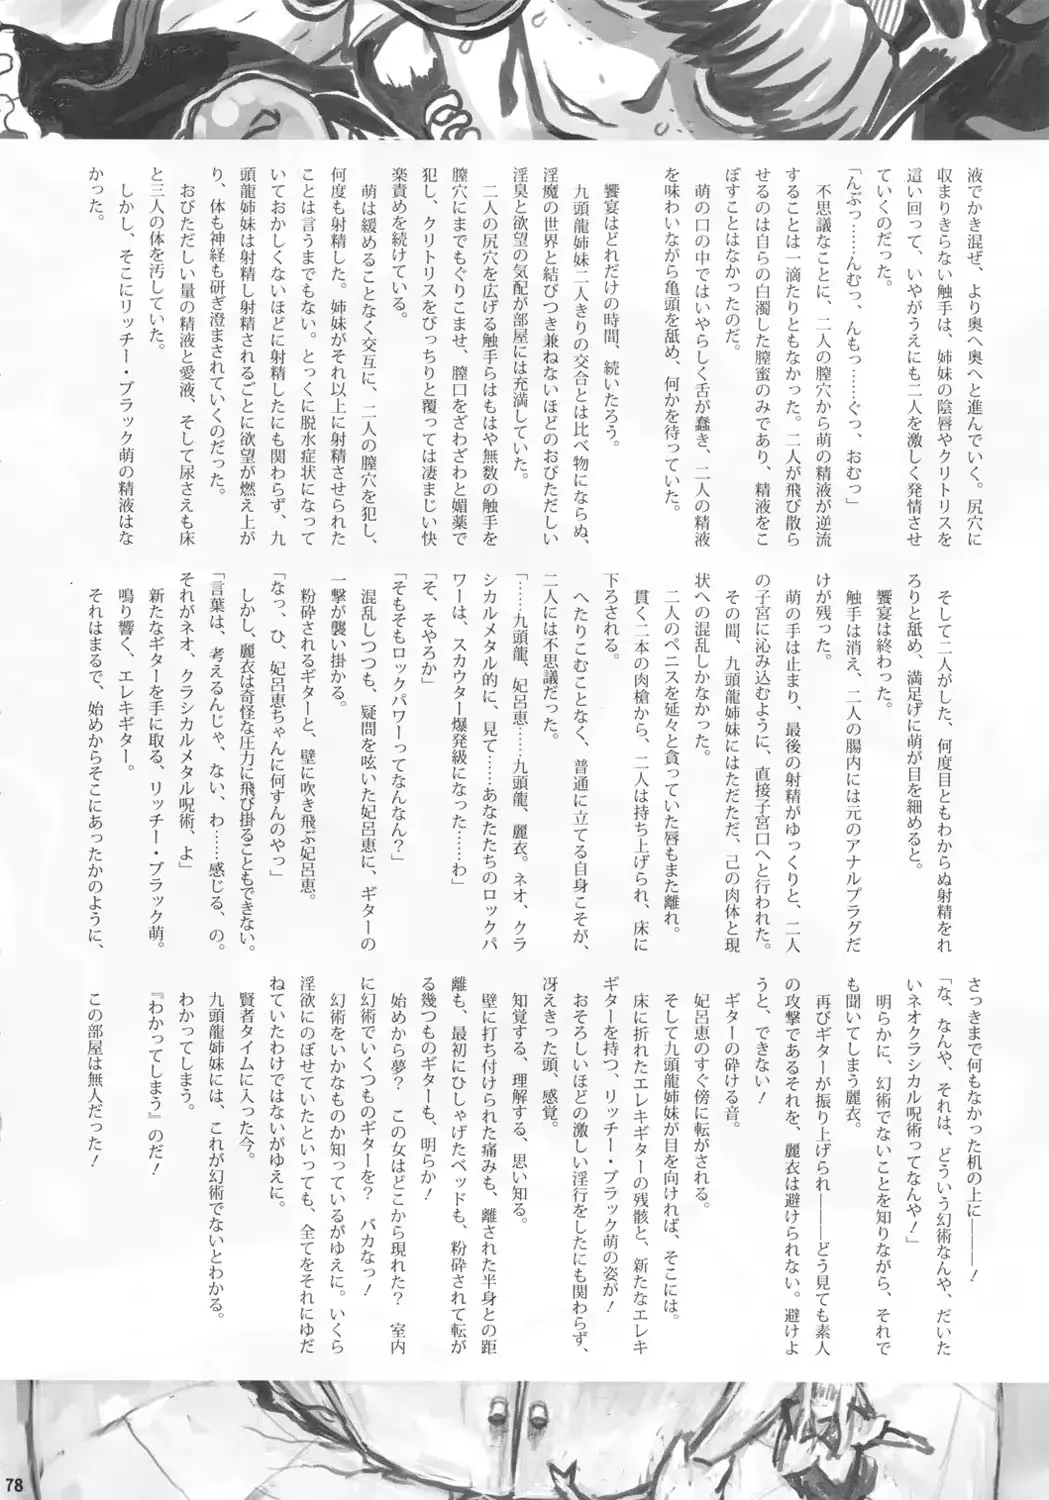 液でかき混ぜ、より奥へ奥へと進んでいく。尻穴に
収まりきらない触手は、姉妹の陰唇やクリトリスを
這い回って、いやがうえにも二人を激しく発情させ
ていくのだった。
「んぶっ……んむっ、んもっ……ぐっ、おむっ」
不思議なことに、二人の膣穴から萌の精液が逆流
することは一滴たりともなかった。二人が飛び散ら
せるのは自らの白濁した膣蜜のみであり、精液をこ
ぼすことはなかったのだ。
萌の口の中ではいやらしく舌が蠢き、二人の精液
を味わいながら亀頭を舐め、何かを待っていた。
饗宴はどれだけの時間、続いたろう。
九頭龍姉妹二人きりの交合とは比べ物にならぬ、
淫魔の世界と結びつき兼ねないほどのおびただしい
淫臭と欲望の気配が部屋には充満していた。
二人の尻穴を広げる触手らはもはや無数の触手を
膣穴にまでもぐりこませ、膣口をざわざわと媚薬で
犯し、クリトリスをびっちりと覆っては凄まじい快
楽責めを続けている。
萌は緩めることなく交互に、二人の膣穴を犯し、
何度も射精した。姉妹がそれ以上に射精させられた
ことは言うまでもない。とっくに脱水症状になって
いておかしくないほどに射精したにも関わらず、九
頭龍姉妹は射精し射精されるごとに欲望が燃え上が
り、体も神経も研ぎ澄まされていくのだった。
おびただしい量の精液と愛液、そして尿さえも床
と三人の体を汚していた。
しかし、そこにリッチー・ブラック萌の精液はな
かった。
そして二人がした、何度目ともわからぬ射精をれ
ろりと舐め、満足げに萌が目を細めると。
饗宴は終わった。
触手は消え、二人の腸内には元のアナルプラグだ
けが残った。
萌の手は止まり、最後の射精がゆっくりと、二人
の子宮に沁み込むように、直接子宮口へと行われた。
その間、九頭龍姉妹にはただただ、己の肉体と現
状への混乱しかなかった。
二人のペニスを延々と貪っていた唇もまた離れ。
貫く二本の肉槍から、二人は持ち上げられ、床に
下ろされる。
へたりこむことなく、普通に立てる自身こそが、
二人には不思議だった。
「……九頭龍、妃呂恵……九頭龍、麗衣。ネオ、クラ
シカルメタル的に、見て……あなたたちのロックパ
ワーは、スカウター爆発級になった……わ」
「そ、そやろか」
「そもそもロックパワーってなんなん？」
混乱しつつも、疑問を呟いた妃呂恵に、ギターの
一撃が襲い掛かる。
粉砕されるギターと、壁に吹き飛ぶ妃呂恵。
「なっ、ひ、妃呂恵ちゃんに何すんのやっ」
しかし、麗衣は奇怪な圧力に飛び掛ることもできない。
「言葉は、考えるんじゃ、ない、わ……感じる、の。
それがネオ、クラシカルメタル呪術、よ」
新たなギターを手に取る、リッチー・ブラック萌。
鳴り響く、エレキギター。
それはまるで、始めからそこにあったかのように、
さっきまで何もなかった机の上に――――！
「な、なんや、それは、どういう幻術なんや、だいた
いネオクラシカル呪術ってなんや！」
明らかに、幻術でないことを知りながら、それで
も聞いてしまう麗衣。
再びギターが振り上げられ――――どう見ても素人
の攻撃であるそれを、麗衣は避けられない。避けよ
うと、できない！
ギターの砕ける音。
妃呂恵のすぐ傍に転がされる。
そして九頭龍姉妹が目を向ければ、そこには。
床に折れたエレキギターの残骸と、新たなエレキ
ギターを持つ、リッチー・ブラック萌の姿が！
おそろしいほどの激しい淫行をしたにも関わらず、
冴えきった頭、感覚。
知覚する、理解する、思い知る。
壁に打ち付けられた痛みも、離された半身との距
離も、最初にひしゃげたベッドも、粉砕されて転が
る幾つものギターも、明らか！
始めから夢？　この女はどこから現れた？　室内
に幻術でいくつものギターを？　バカなっ！
幻術をいかなものか知っているがゆえに。いくら
淫欲にのぼせていたといっても、全てをそれにゆだ
ねていたわけではないがゆえに。
賢者タイムに入った今。
九頭龍姉妹には、これが幻術でないとわかる。
わかってしまう。
『わかってしまう』のだ！
この部屋は無人だった！
78